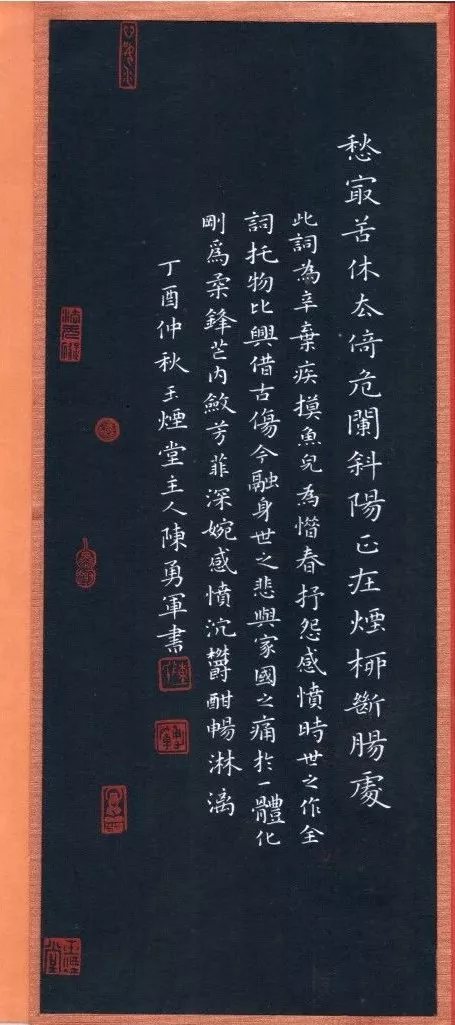 愁㝡苦休厺倚危闌斜陽正在煙柳斷腸處
此詞為辛棄疾摸魚兒為惜春抒怨感憤時世之作全
詞托物比興借古傷今融身世之悲與家國之痛於一體化
剛爲柔鋒芒內斂芳菲深婉感憤沉鬱酣暢淋漓
丁酉仲秋玉煙堂主人陳勇軍書
玉煙堂